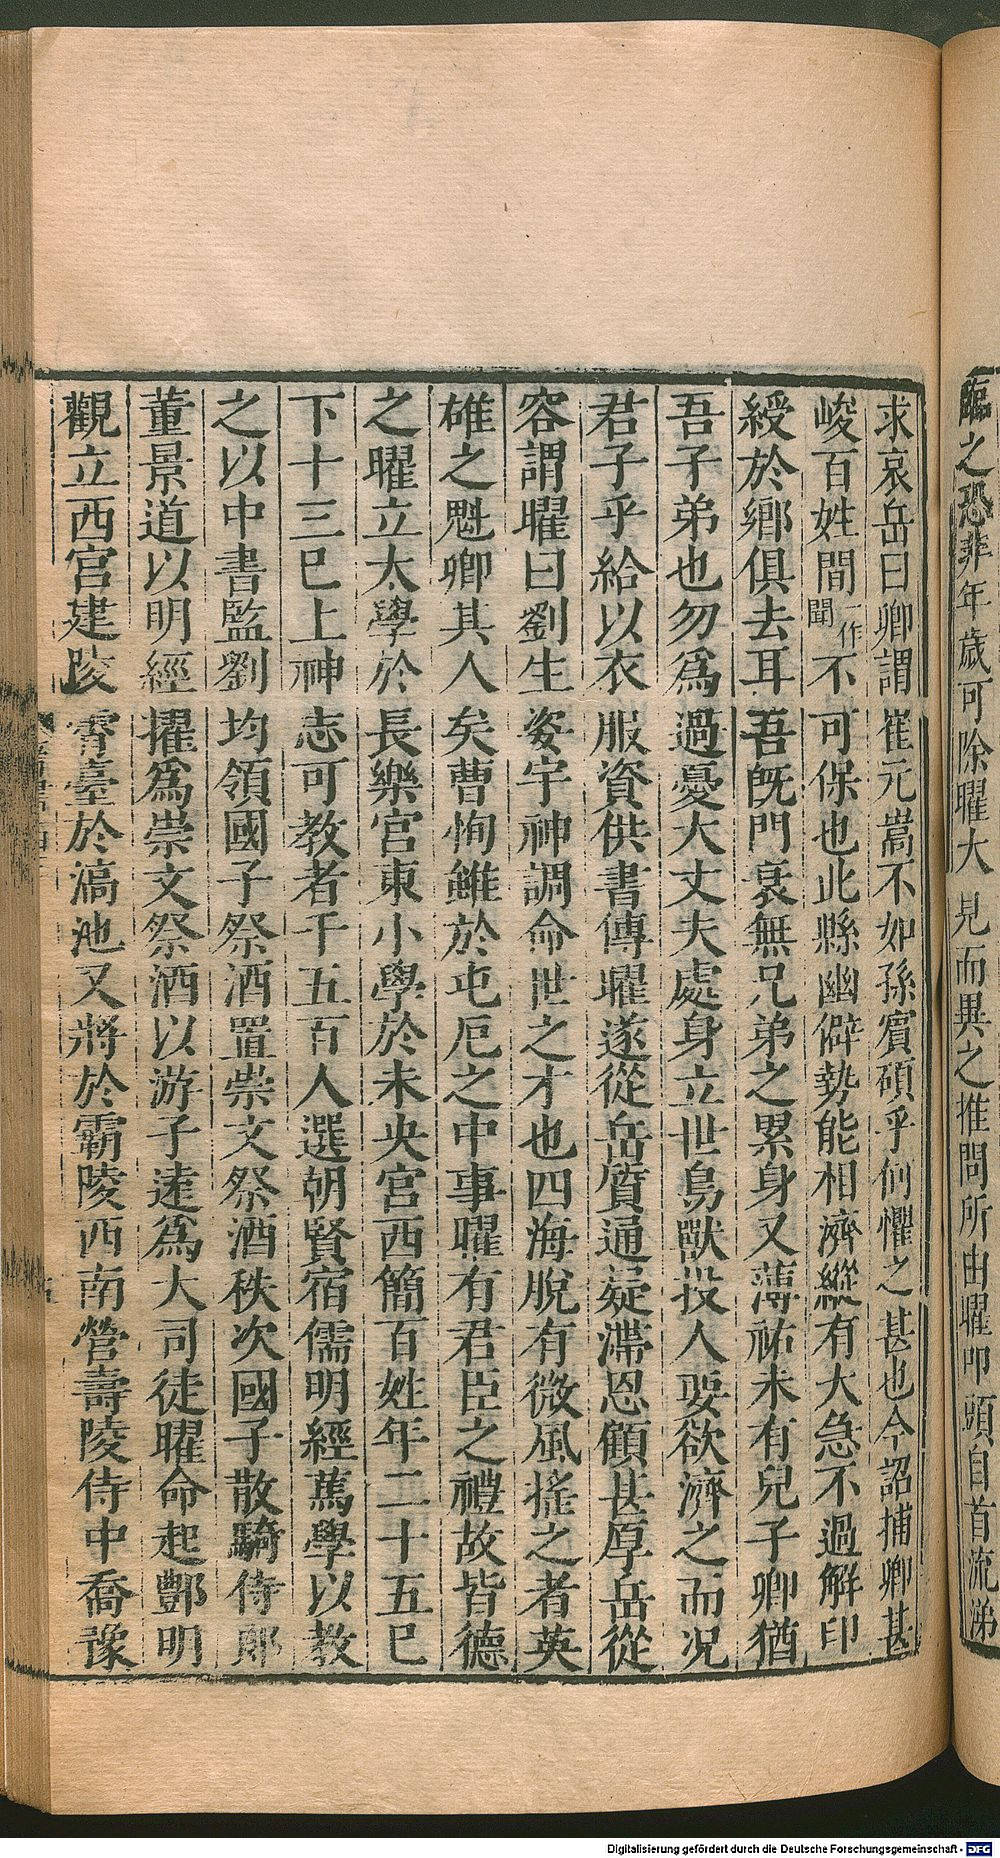 臨之恐非年歲可除曜大見而異之推問所由曜叩頭自首流涕
求哀岳曰卿謂崔元嵩不如孫賓碩乎何懼之甚也今詔捕卿甚
峻百姓間一作聞不可保也此縣幽僻勢能相濟縱有大急不過解印
綬於鄉俱去耳吾既門衰無兄弟之累身又薄祐未有兒子卿猶
吾子弟也勿為過憂大丈夫處身立世鳥獸投人要欲濟之而況
君子乎給以衣服資供書傳曜遂從岳質通疑滯恩顧甚厚岳從
容謂曜曰劉生姿宇神調命世之才也四海脫有微風搖之者英
雄之魁卿其人矣曹恂雖於屯厄之中事曜有君臣之禮故皆德
之曜立太學於長樂宮東小學於未央宮西簡百姓年二十五已
下十三已上神志可教者千五百人選朝賢宿儒明經篤學以教
之以中書監劉均領國子祭酒置崇文祭酒秩次國子散騎侍郎
董景道以明經擢為崇文祭酒以游子遠為大司徒曜命起酆明
觀立西宮建陵霄臺於滈池又將於霸陵西南營壽陵侍中喬豫
Digitalisierung gefördert durch die Deutsche Forschungsgemeinschaft - DFG